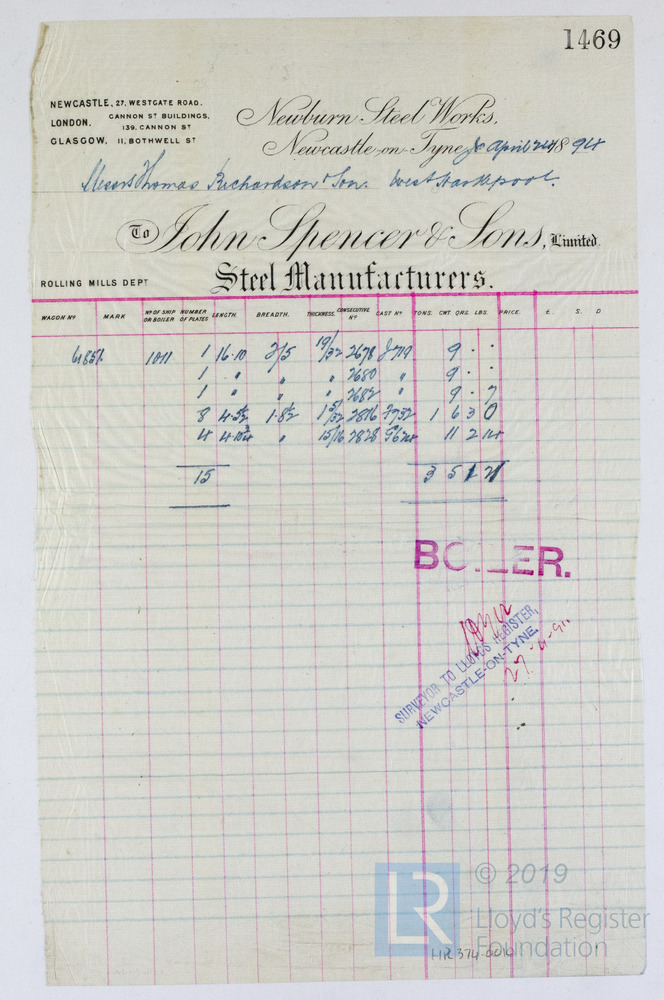 1469
NEWCASTLE, 27, WESTGATE ROAD.
LONDON. CANNON ST BUILDINGS,
139, CANNON ST
GLASGOW, 11, BOTHWELL ST
Newburn Steel Works,
Newcastle-on-Tyne, April 24 1894
Messrs Thomas Richardson & Son. West Hartlepool.
To John Spencer & Sons, Limited.
ROLLING MILLS DEPT
Steel Manufacturers.
WAGON No MARK No OF SHIP OR BOILER NUMBER OF PLATES LENGTH. BREADTH. THICKNESS. CONSECUTIVE No CAST No TONS. CWT. QRS. LBS. PRICE. £. S. D
1011 1 16.10 2/5 19/32 2678 J719 9 . .
1 " " " 2680 " 9 . .
1 " " " 2682 " 9 . 7
8 1.8½ 2816 1 6 3 0
4 " 15/16 2828 11 2 14
15 3 5 21
BOILER.
SURVEYOR TO LLOYD'S REGISTER,
NEWCASTLE-ON-TYNE.
27.4.94
© 2019
LR
Lloyd's Register
Foundation